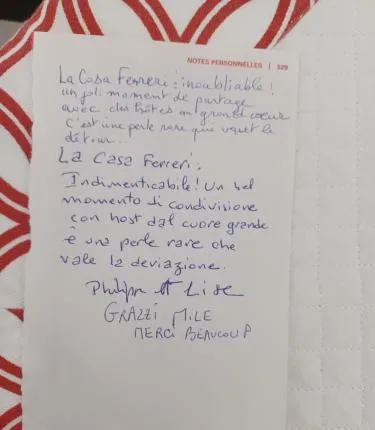 NOTES PERSONNELLES | 329
La Casa Ferreri : inoubliable !
un joli moment de partage
avec des hôtes au grand coeur
C'est une perle rare qui vaut le
détour...
La Casa Ferreri :
Indimenticabile ! Un bel
momento di condivisione
con host dal cuore grande
è una perle rare che
vale la deviazione.
Philippe et Lise
GRAZZI MILE
MERCI BEAUCOUP